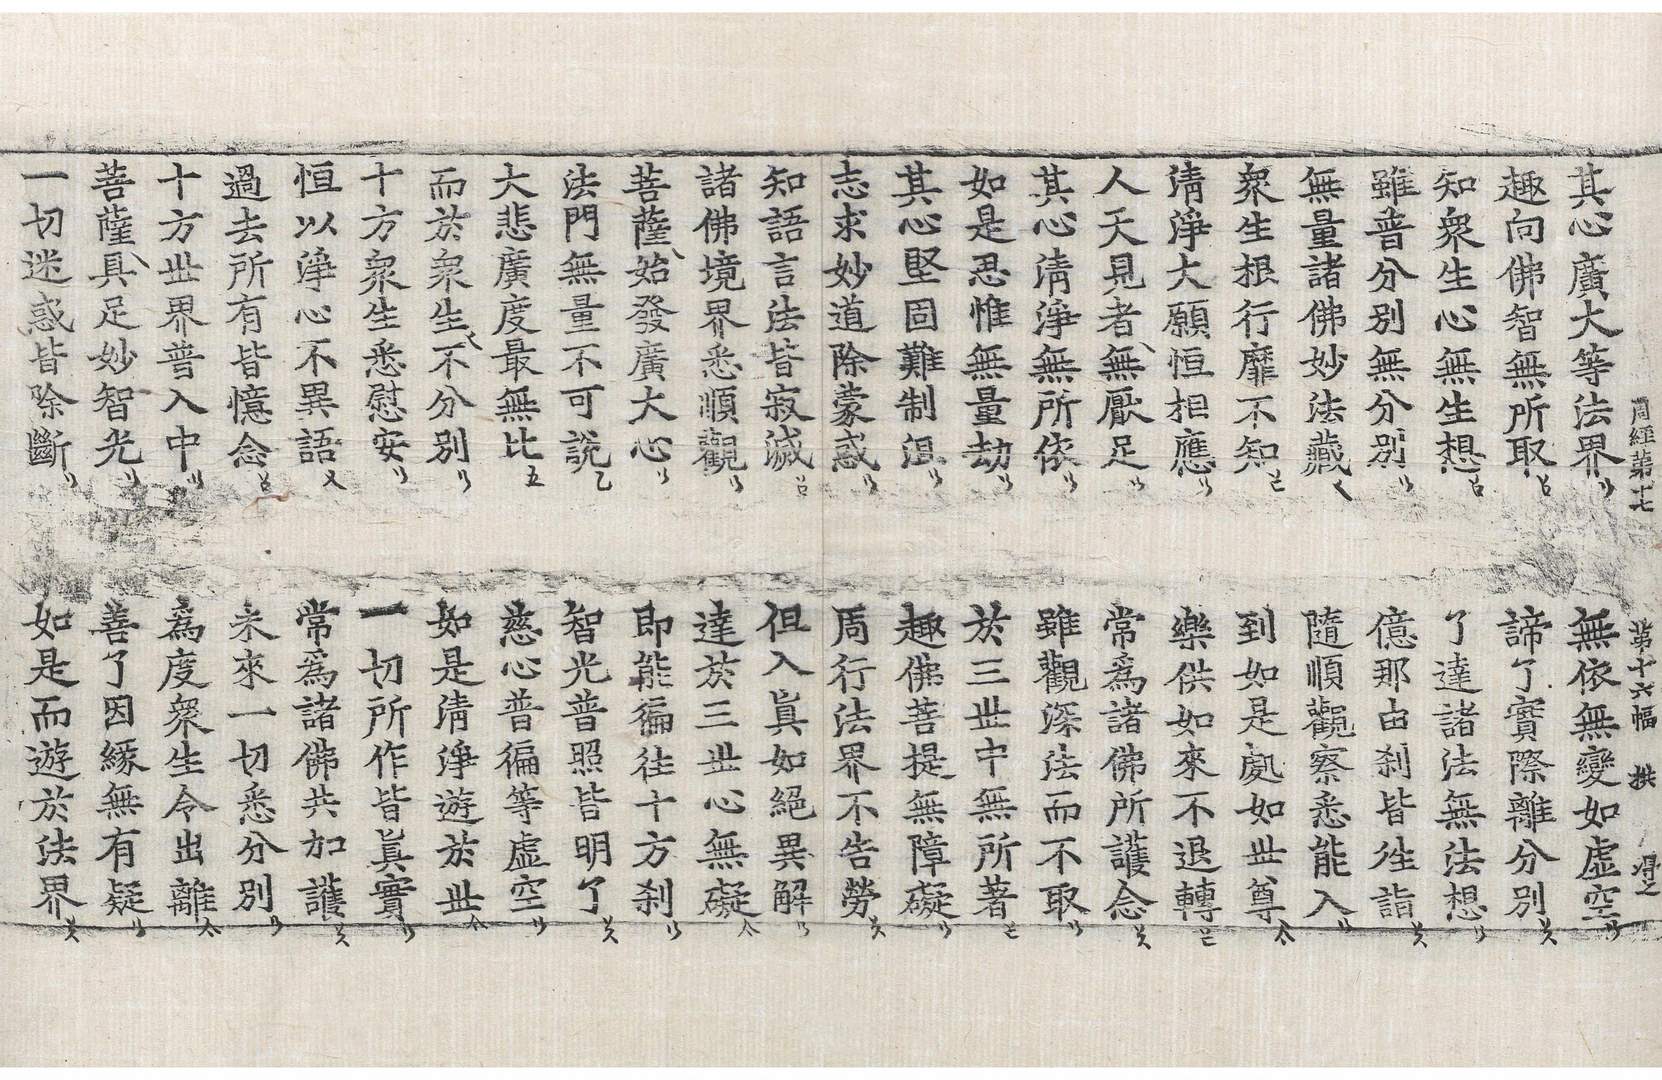 周經第十七 第十六幅 拱 淂之
其心廣大等法界 無依無變如虛空
趣向佛智無所取 諦了實際離分別
知衆生心無生想 了達諸法無法想
雖普分別無分別 億那由刹皆徃詣
無量諸佛妙法藏 隨順觀察悉能入
衆生根行靡不知 到如是處如世尊
清淨大願恒相應 樂供如來不退轉
人天見者無厭足 常爲諸佛所護念
其心清淨無所依 雖觀深法而不取
如是思惟無量劫 於三世中無所著
其心堅固難制沮 趣佛菩提無障礙
志求妙道除蒙惑 周行法界不告勞
知語言法皆寂滅 但入眞如絕異解
諸佛境界悉順觀 達於三世心無礙
菩薩始發廣大心 即能徧往十方刹
法門無量不可說 智光普照皆明了
大悲廣度最無比 慈心普徧等虛空
而於衆生不分別 如是清淨遊於世
十方衆生悉慰安 一切所作皆眞實
恒以淨心不異語 常爲諸佛共加護
過去所有皆憶念 未來一切悉分別
十方世界普入中 爲度衆生令出離
菩薩具足妙智光 善了因緣無有疑
一切迷惑皆除斷 如是而遊於法界